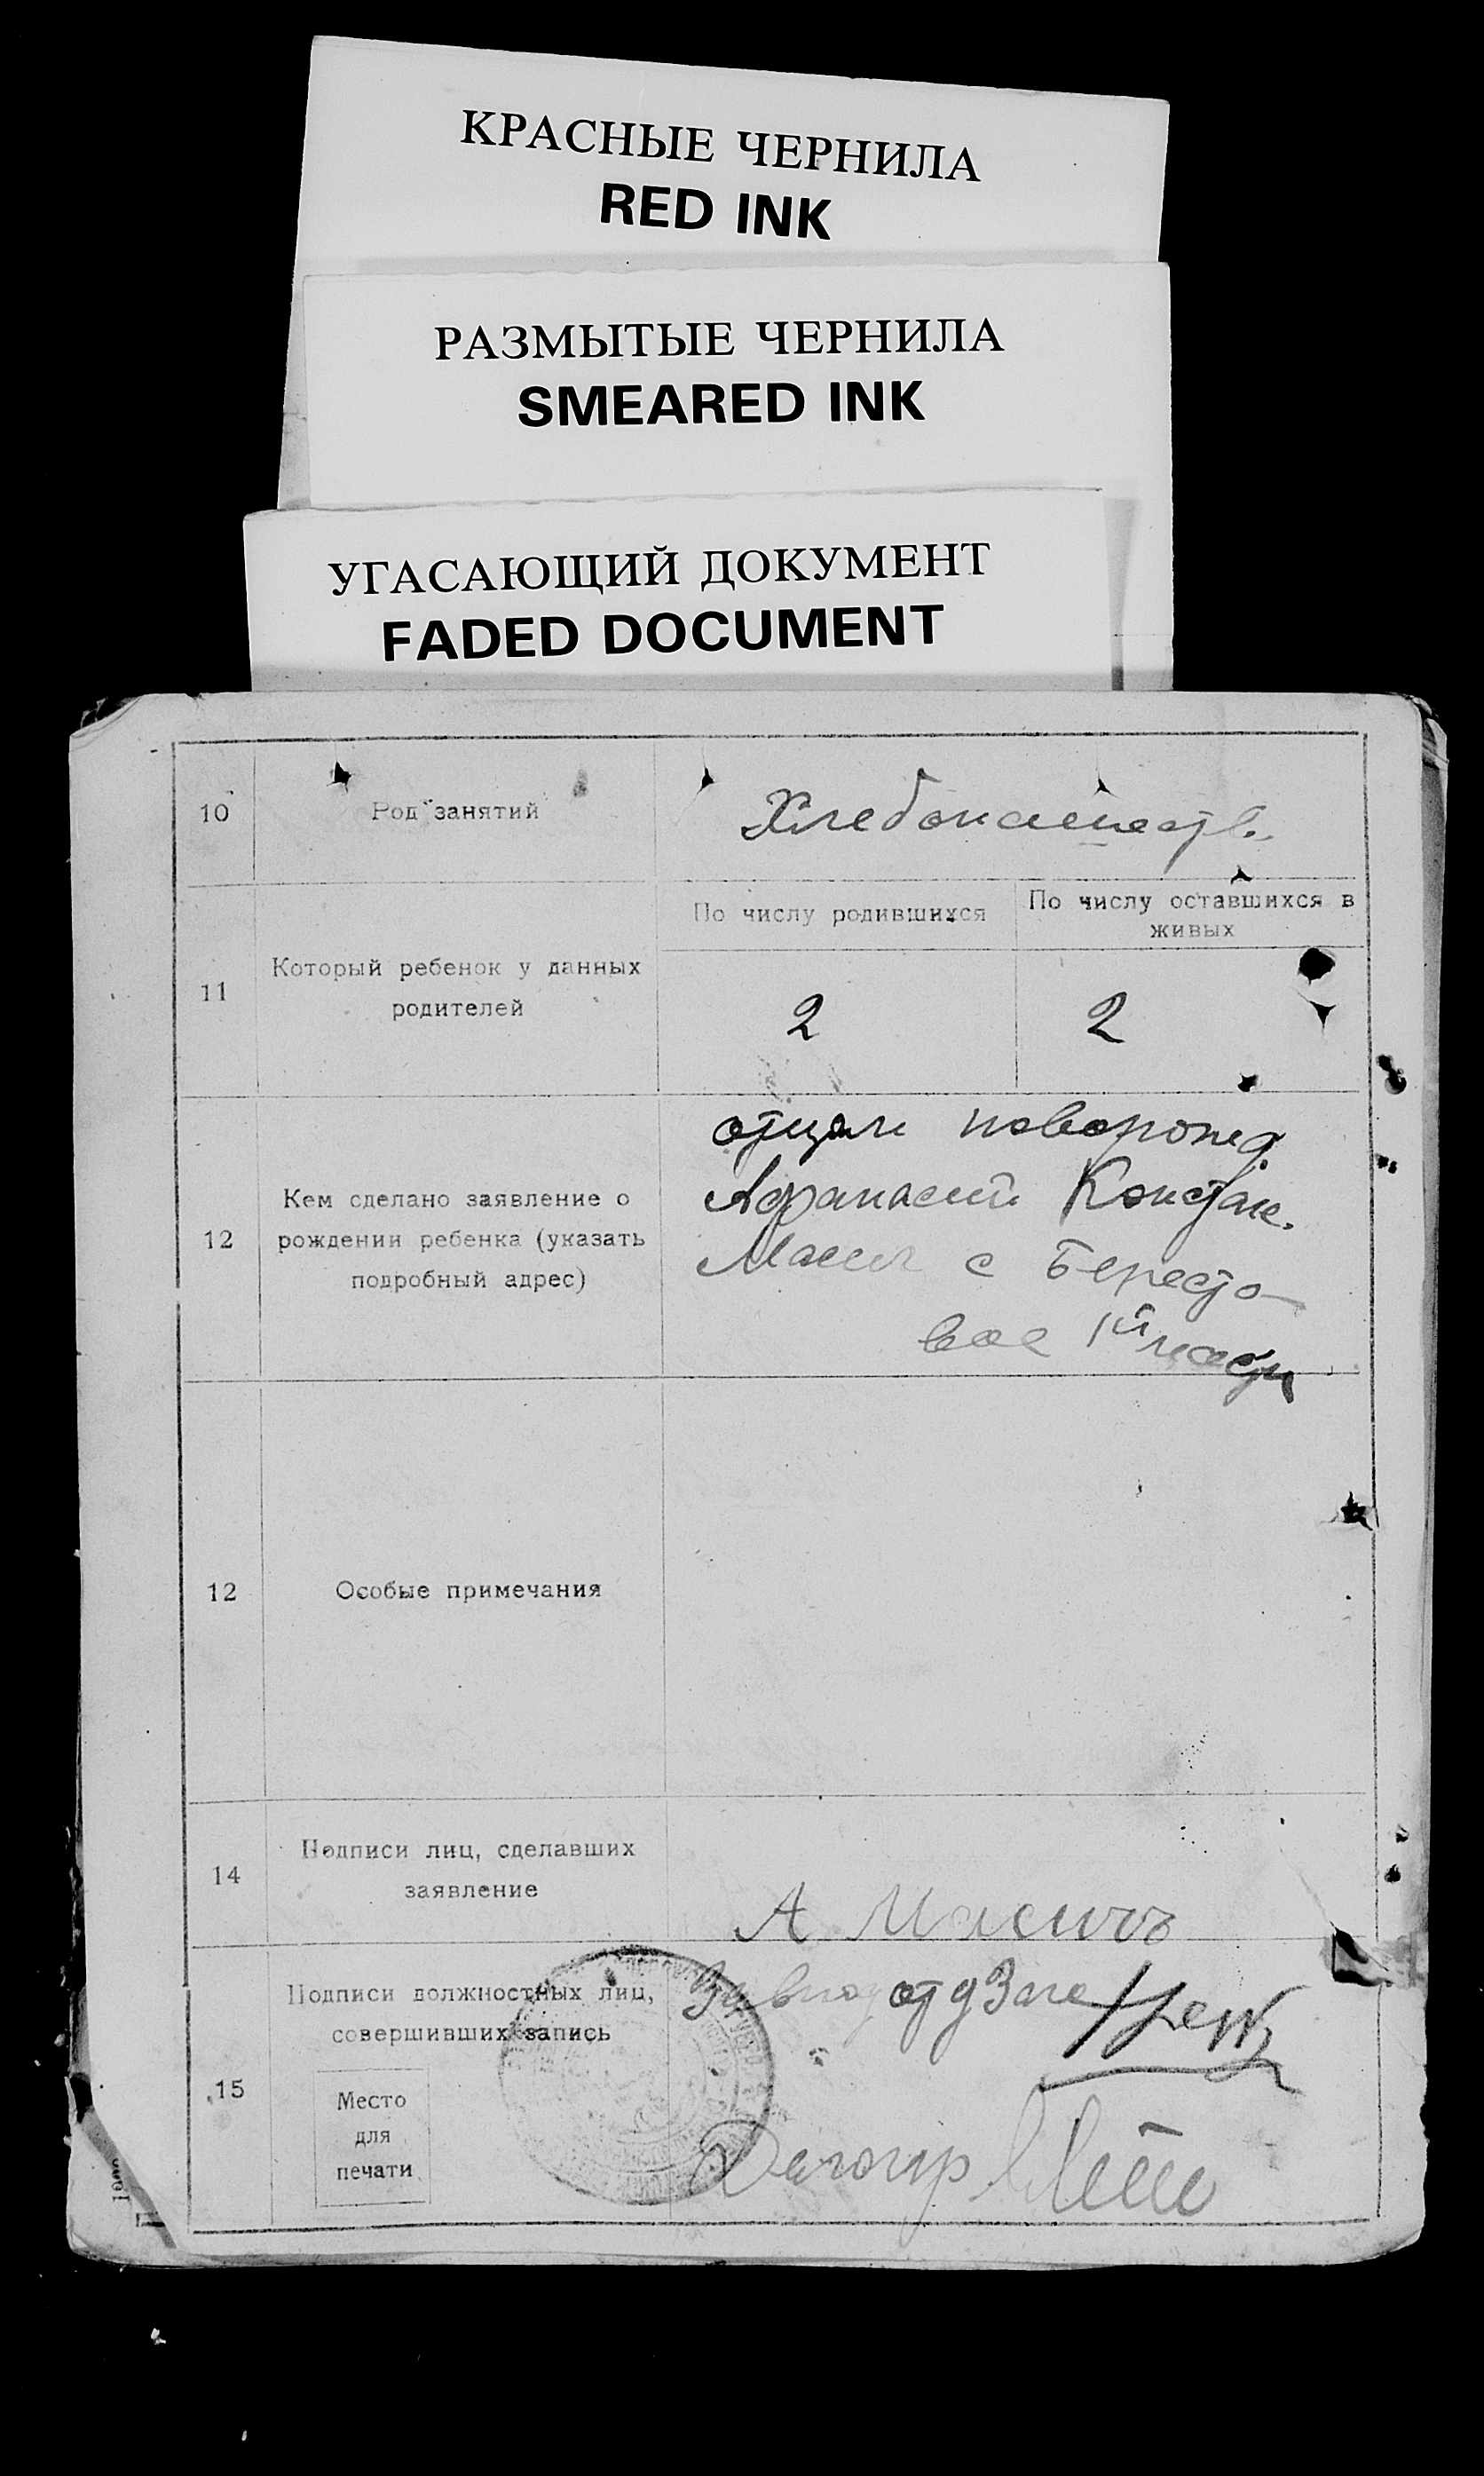 КРАСНЫЕ ЧЕРНИЛА
RED INK
РАЗМЫТЫЕ ЧЕРНИЛА
SMEARED INK
УГАСАЮЩИЙ ДОКУМЕНТ
FADED DOCUMENT
10
Род занятий
Хлебопашеств.
11
Который ребенок у данных
родителей
По числу родившихся
2
По числу оставшихся в
живых
2
12
Кем сделано заявление о
рождении ребенка (указать
подробный адрес)
отцом новорожд.
Афанасий Констан.
с Бересто-
вое
12
Особые примечания
14
Подписи лиц, сделавших
заявление
А
15
Подписи должностных лиц,
совершивших запись
Место
для
печати